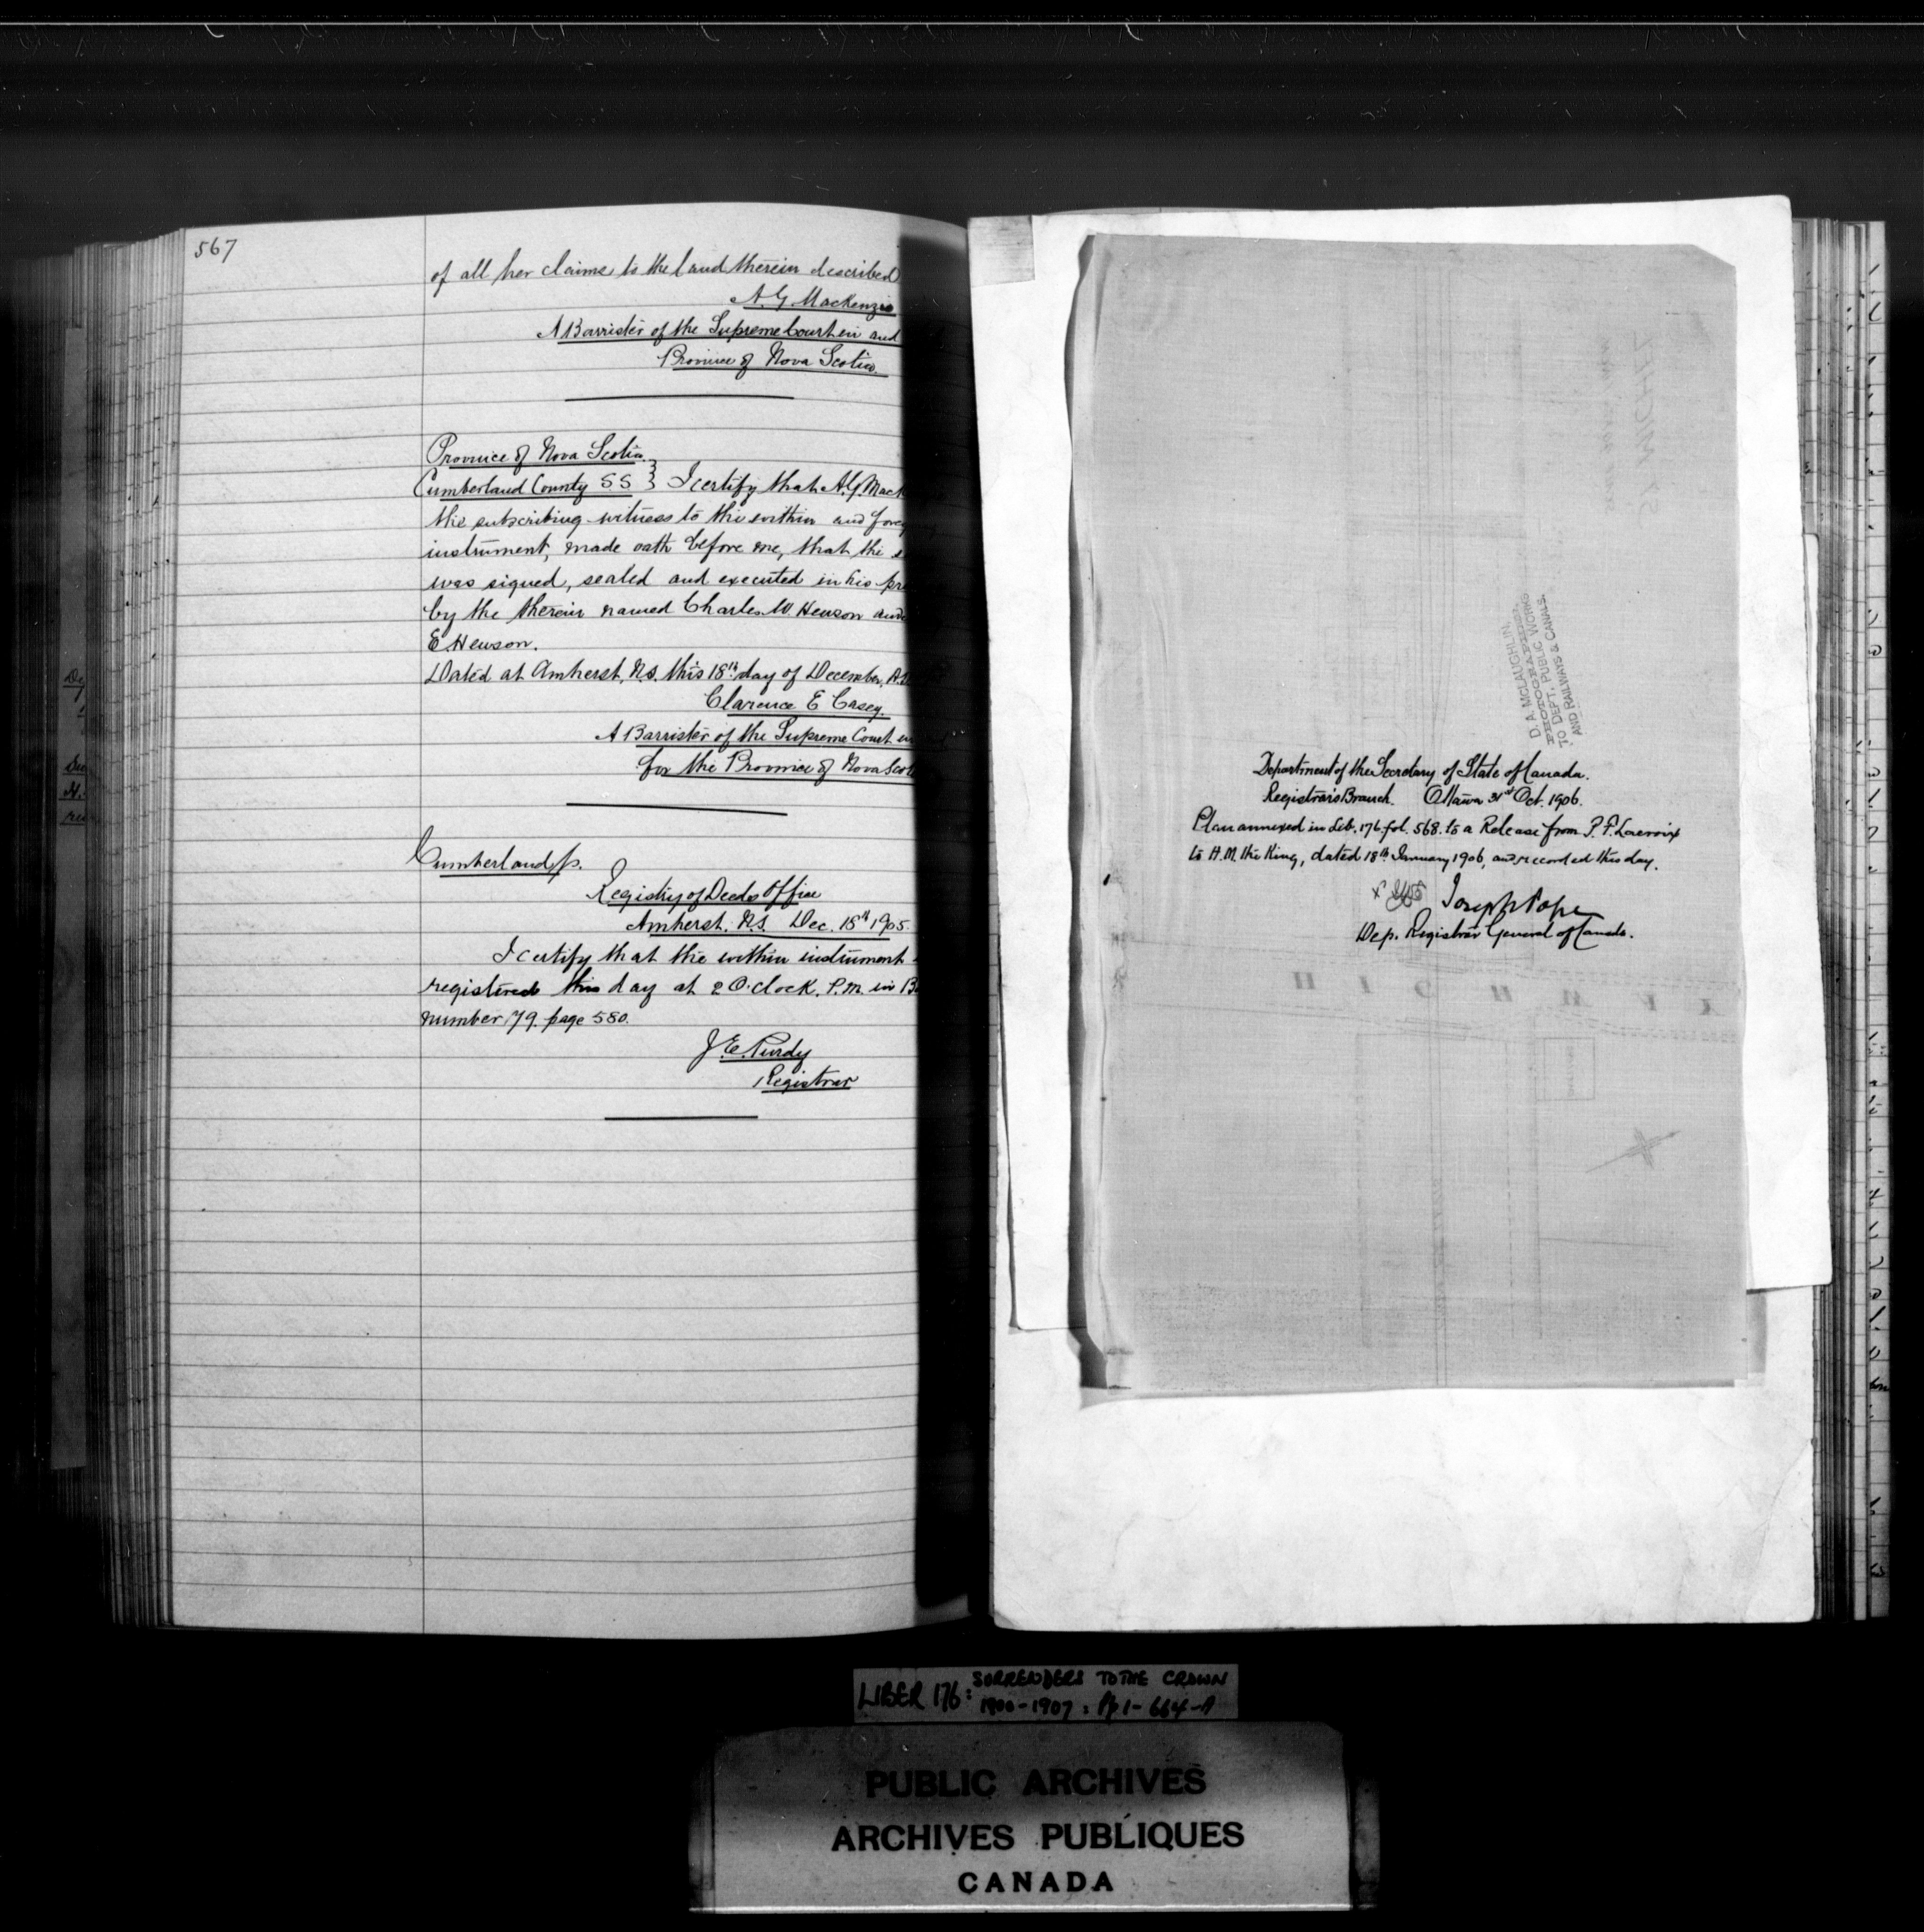 567
of all her claims to the land therein described
A. G. Mackenzie
A Barrister of the Supreme Court in and
Province of Nova Scotia.
Province of Nova Scotia.
Cumberland County SS } I certify that A. G. Mack
the subscribing witness to the within and foreg
instrument, made oath before me, that the s
was signed, sealed and executed in his pre
by the therein named Charles W. Hewson and
E. Hewson.
Dated at Amherst, N.S. this 18th day of December, A.D
Clarence E Casey.
A Barrister of the Supreme Court in
for the Province of Nova Scot
Cumberland ss.
Registry of Deeds Office
Amherst. N.S. Dec. 18th 1905.
I certify that the within instrument
registered this day at 2 O'clock. P.M. in Bo
number 79. page 580.
J. E. Purdy
Registrar
D. A. McLAUGHLIN,
PHOTOGRAPHER
TO DEPT. PUBLIC WORKS
AND RAILWAYS & CANALS.
Department of the Secretary of State of Canada.
Registrar's Branch. Ottawa 31st Oct. 1906.
Plan annexed in Lib. 176 fol. 568. to a Release from P. F. Lacroix
to H. M. the King, dated 18th January 1906, and recorded this day.
Joseph Pope
Dep. Registrar General of Canada.
LIBER 176: SURRENDERS TO THE CROWN
1900-1907: Pp 1-664-A
PUBLIC ARCHIVES
ARCHIVES PUBLIQUES
CANADA